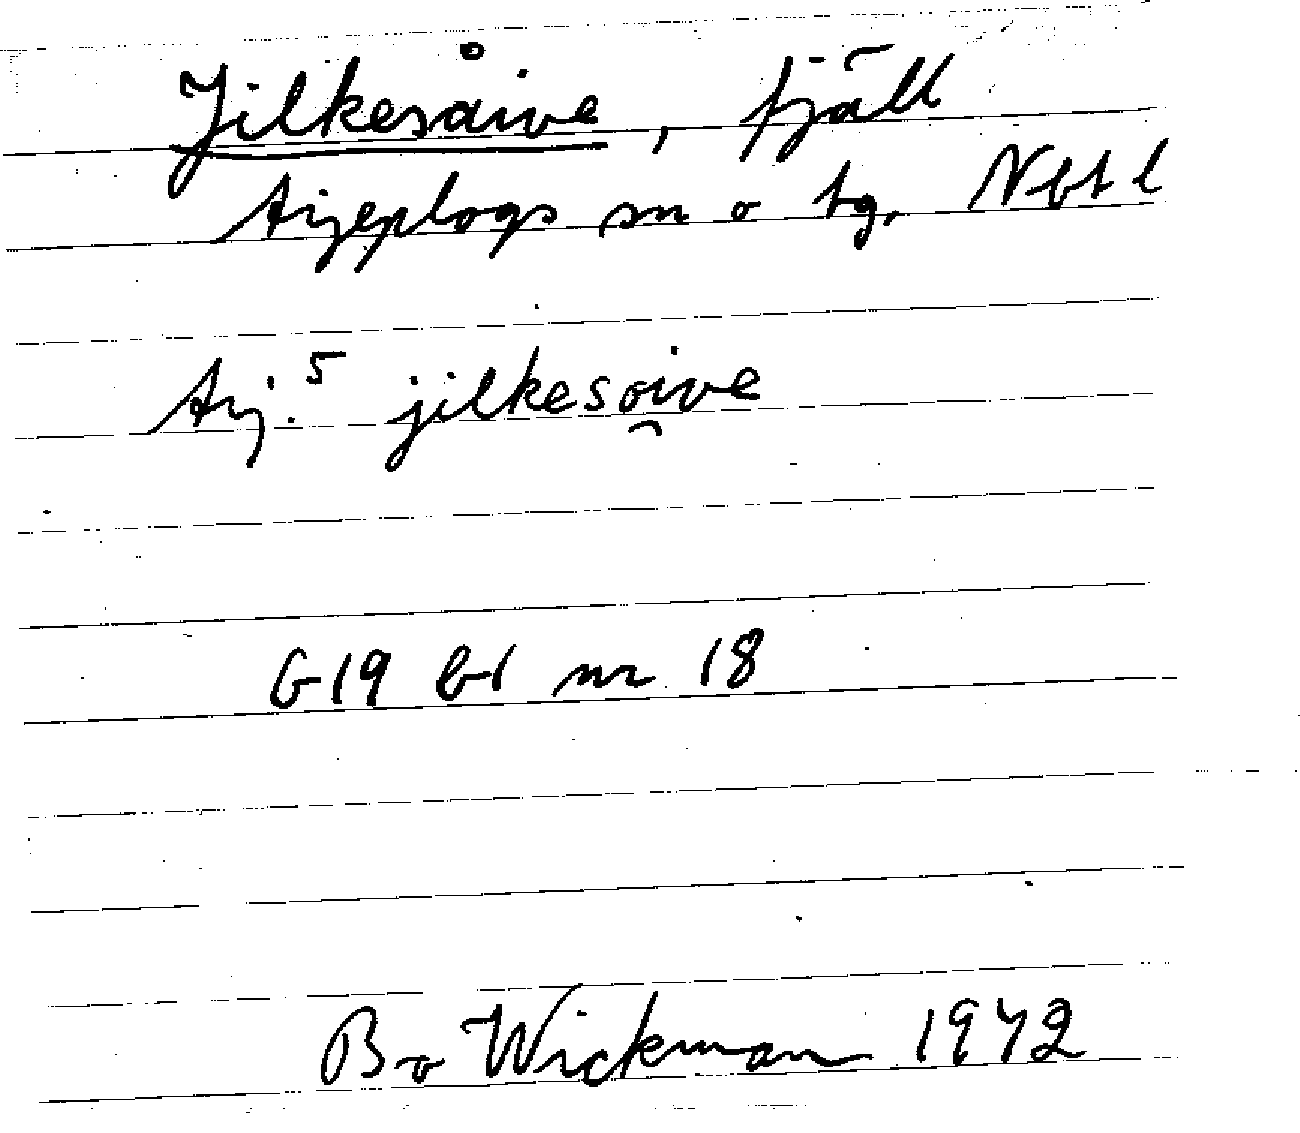 Jilkesåive, fjäll
Arjeplogs sn o tg, Nbt l
Arj.5 jilkeso̯ive
G19 bl nr 18
Bo Wickman 1942